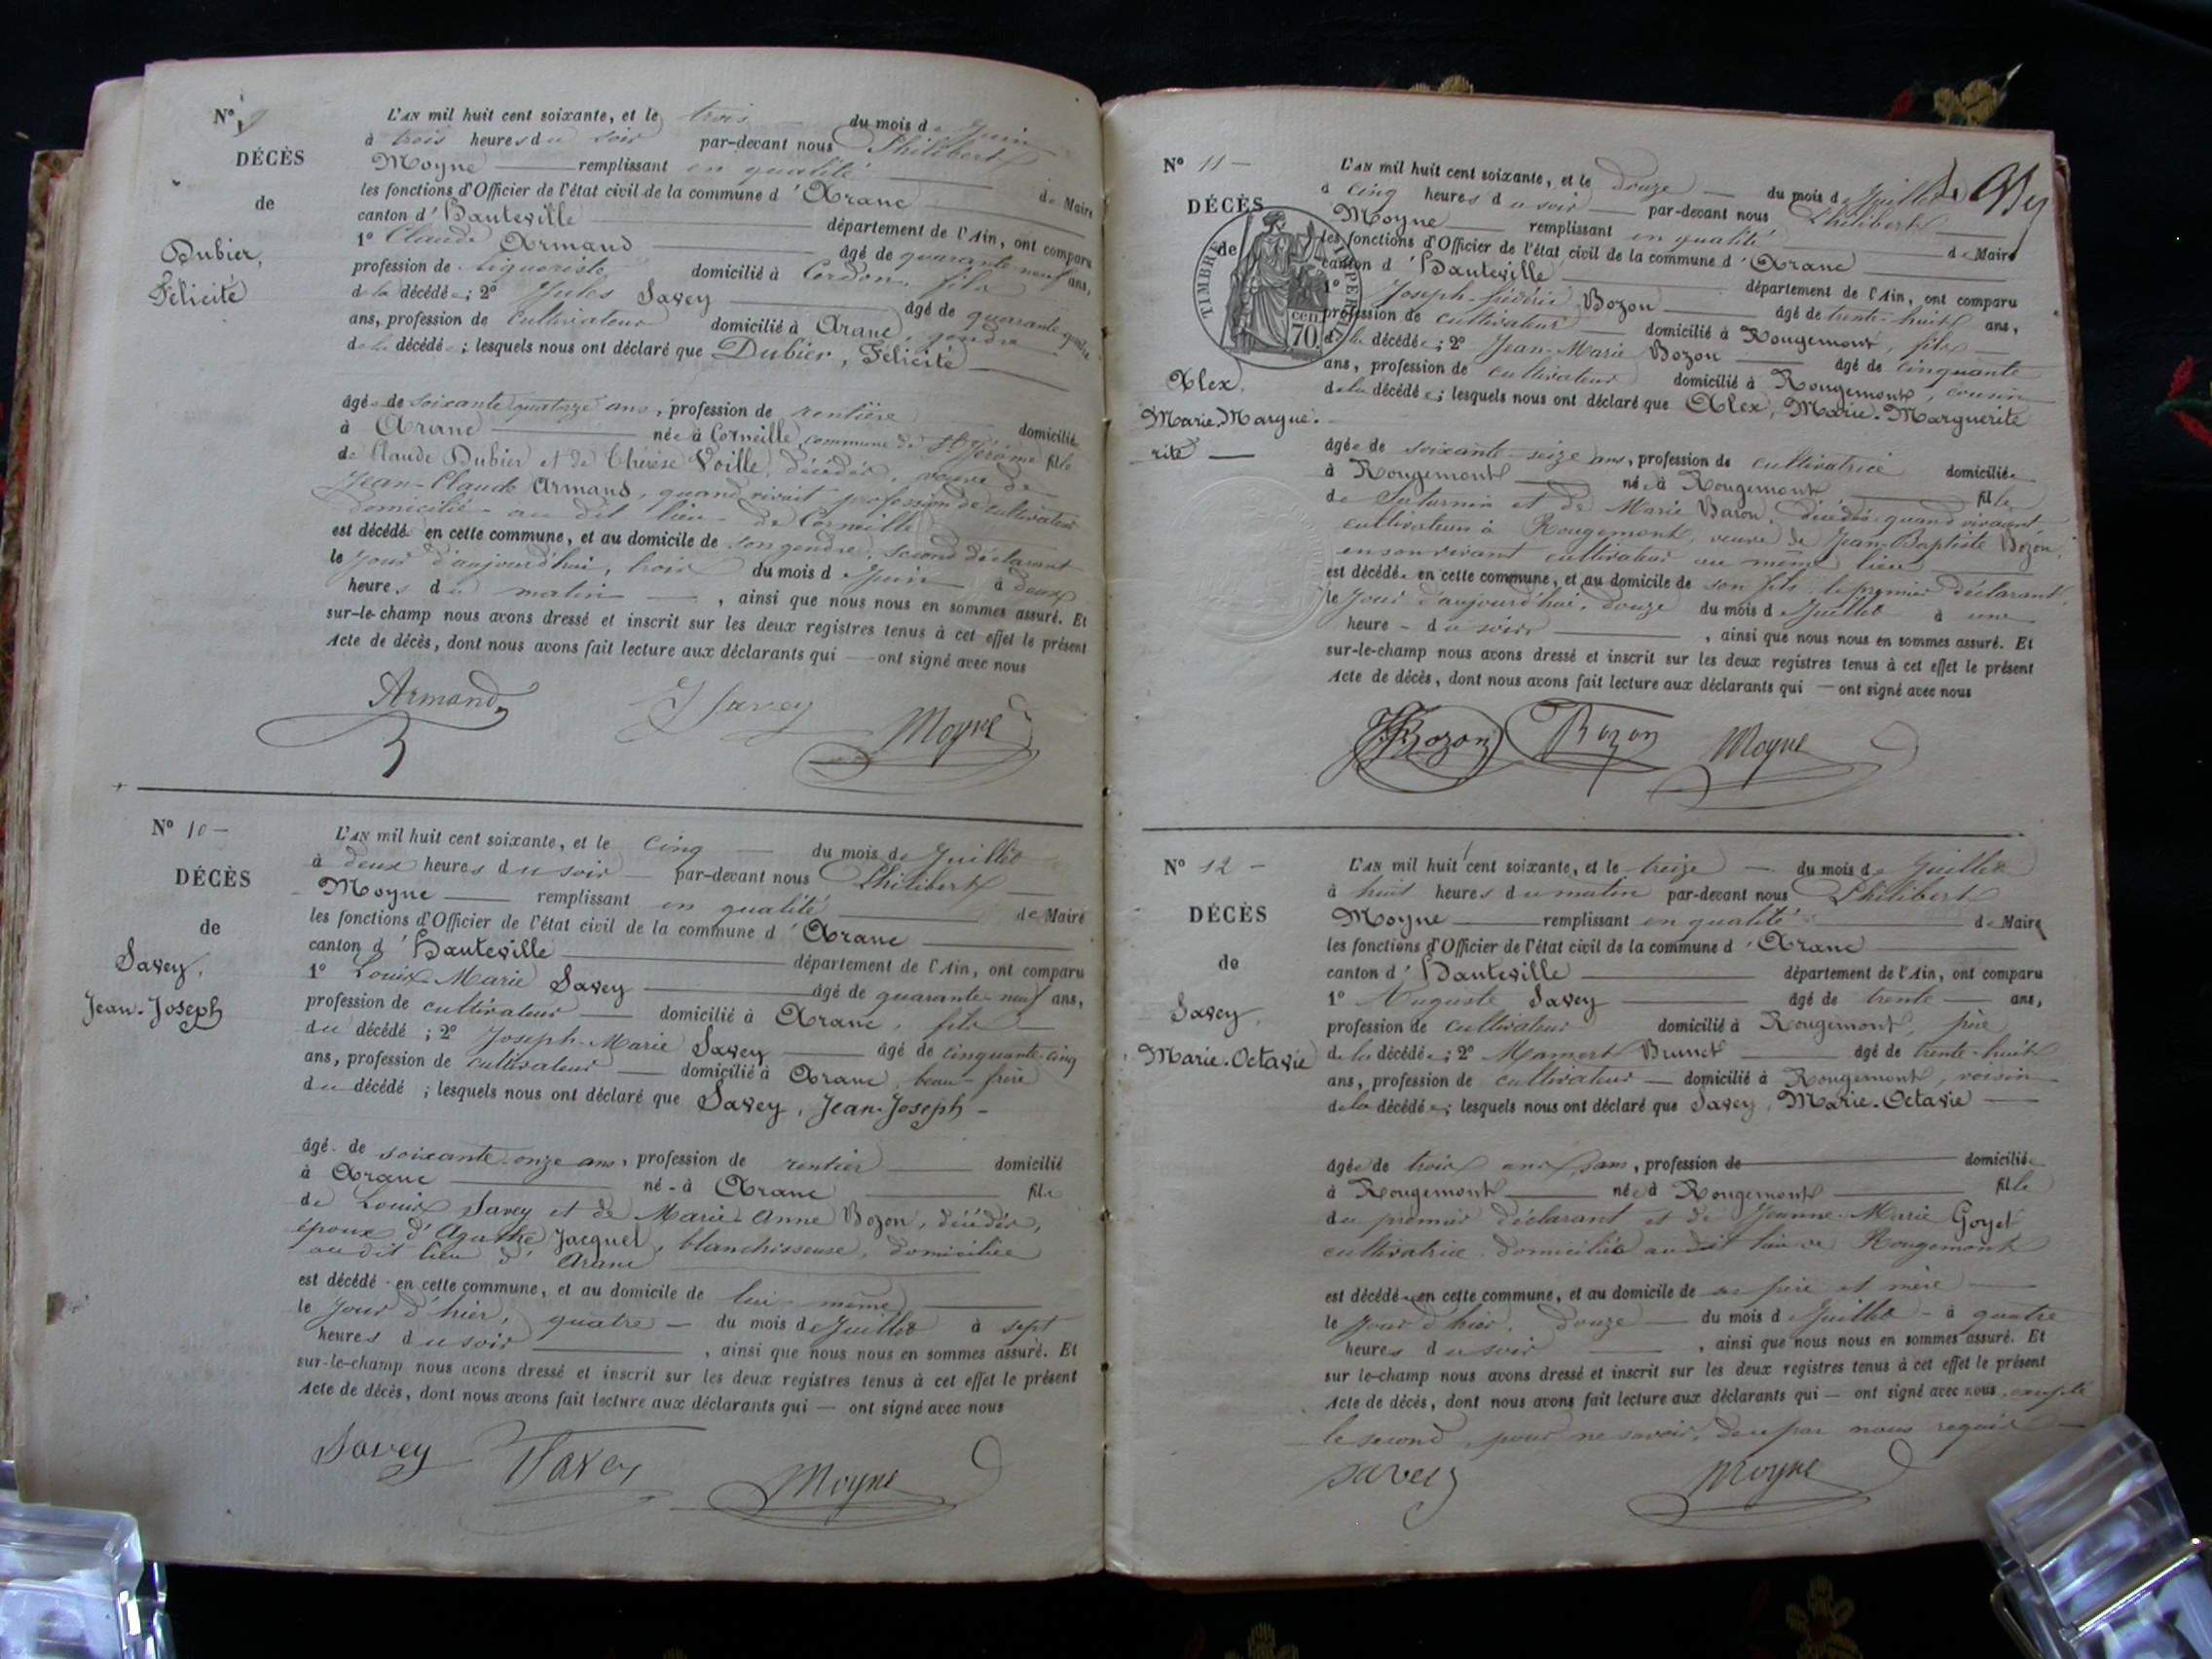 N° 9
DÉCÈS
de
Dubier,
Félicité
L'AN mil huit cent soixante, et le trois du mois de Juin
à trois heures du soir par-devant nous Philibert
Moyne remplissant en qualité de Maire
les fonctions d'Officier de l'état civil de la commune d'Aranc
canton d'Hauteville département de l'Ain, ont comparu
1° Claude Armand âgé de quarante-neuf ans,
profession de liquoriste domicilié à Cerdon, fils
de la décédée; 2° Jules Savey âgé de quarante quatre
ans, profession de cultivateur domicilié à Aranc, gendre
de la décédée; lesquels nous ont déclaré que Dubier, Félicité
âgée de soixante quatorze ans, profession de rentière domiciliée
à Aranc née à Corneille, commune de St Jérôme fille
de Claude Dubier et de Thérèse Voille, décédés, veuve de
Jean-Claude Armand, quand vivait profession de cultivateur
domicilié au dit lieu de Corneille
est décédée en cette commune, et au domicile de son gendre, second déclarant
le jour d'aujourd'hui, trois du mois de Juin à deux
heures du matin, ainsi que nous nous en sommes assuré. Et
sur-le-champ nous avons dressé et inscrit sur les deux registres tenus à cet effet le présent
Acte de décès, dont nous avons fait lecture aux déclarants qui ont signé avec nous
Armand J Savey Moyne
N° 10
DÉCÈS
de
Savey,
Jean-Joseph
L'AN mil huit cent soixante, et le cinq du mois de Juillet
à deux heures du soir par-devant nous Philibert
Moyne remplissant en qualité de Maire
les fonctions d'Officier de l'état civil de la commune d'Aranc
canton d'Hauteville département de l'Ain, ont comparu
1° Louis Marie Savey âgé de quarante-neuf ans,
profession de cultivateur domicilié à Aranc, fils
du décédé; 2° Joseph-Marie Savey âgé de cinquante-cinq
ans, profession de cultivateur domicilié à Aranc, beau-frère
du décédé; lesquels nous ont déclaré que Savey, Jean-Joseph
âgé de soixante-onze ans, profession de rentier domicilié
à Aranc né à Aranc fils
de Louis Savey et de Marie Anne Bozon, décédés,
époux d'Agathe Jacquet, blanchisseuse, domiciliée
au dit lieu d'Aranc
est décédé en cette commune, et au domicile de lui-même
le jour d'hier, quatre du mois de Juillet à sept
heures du soir, ainsi que nous nous en sommes assuré. Et
sur-le-champ nous avons dressé et inscrit sur les deux registres tenus à cet effet le présent
Acte de décès, dont nous avons fait lecture aux déclarants qui ont signé avec nous
Savey Savey Moyne
N° 11
DÉCÈS
de
TIMBRE IMPERIAL
70 cen.
Alex,
Marie-Margue-
rite
L'AN mil huit cent soixante, et le douze du mois de Juillet
à cinq heures du soir par-devant nous Philibert
Moyne remplissant en qualité de Maire
les fonctions d'Officier de l'état civil de la commune d'Aranc
canton d'Hauteville département de l'Ain, ont comparu
1° Joseph-frédéric Bozon âgé de trente-huit ans,
profession de cultivateur domicilié à Rougemont, fils
de la décédée; 2° Jean-Marie Bozon âgé de cinquante
ans, profession de cultivateur domicilié à Rougemont, cousin
de la décédée; lesquels nous ont déclaré que Alex, Marie-Marguerite
âgée de soixante-seize ans, profession de cultivatrice domiciliée
à Rougemont née à Rougemont fille
de Saturnin et de Marie Baron, décédés quand vivaient
cultivateurs à Rougemont, veuve de Jean-Baptiste Bozon,
en son vivant cultivateur au même lieu
est décédée en cette commune, et au domicile de son fils, le premier déclarant,
le jour d'aujourd'hui, douze du mois de Juillet à une
heure du soir, ainsi que nous nous en sommes assuré. Et
sur-le-champ nous avons dressé et inscrit sur les deux registres tenus à cet effet le présent
Acte de décès, dont nous avons fait lecture aux déclarants qui ont signé avec nous
Bozon Bozon Moyne
N° 12
DÉCÈS
de
Savey,
Marie-Octavie
L'AN mil huit cent soixante, et le treize du mois de Juillet
à huit heures du matin par-devant nous Philibert
Moyne remplissant en qualité de Maire
les fonctions d'Officier de l'état civil de la commune d'Aranc
canton d'Hauteville département de l'Ain, ont comparu
1° Auguste Savey âgé de trente ans,
profession de cultivateur domicilié à Rougemont, père
de la décédée; 2° Mamert Brunet âgé de trente-huit
ans, profession de cultivateur domicilié à Rougemont, voisin
de la décédée; lesquels nous ont déclaré que Savey, Marie-Octavie
âgée de trois ans, sans, profession de domiciliée
à Rougemont née à Rougemont fille
du premier déclarant et de Jeanne-Marie Goyet
cultivatrice domiciliée au dit lieu de Rougemont
est décédée en cette commune, et au domicile de ses père et mère
le jour d'hier, douze du mois de Juillet à quatre
heures du soir, ainsi que nous nous en sommes assuré. Et
sur le-champ nous avons dressé et inscrit sur les deux registres tenus à cet effet le présent
Acte de décès, dont nous avons fait lecture aux déclarants qui ont signé avec nous, excepté
le second, pour ne savoir, de ce par nous requis
Savey Moyne